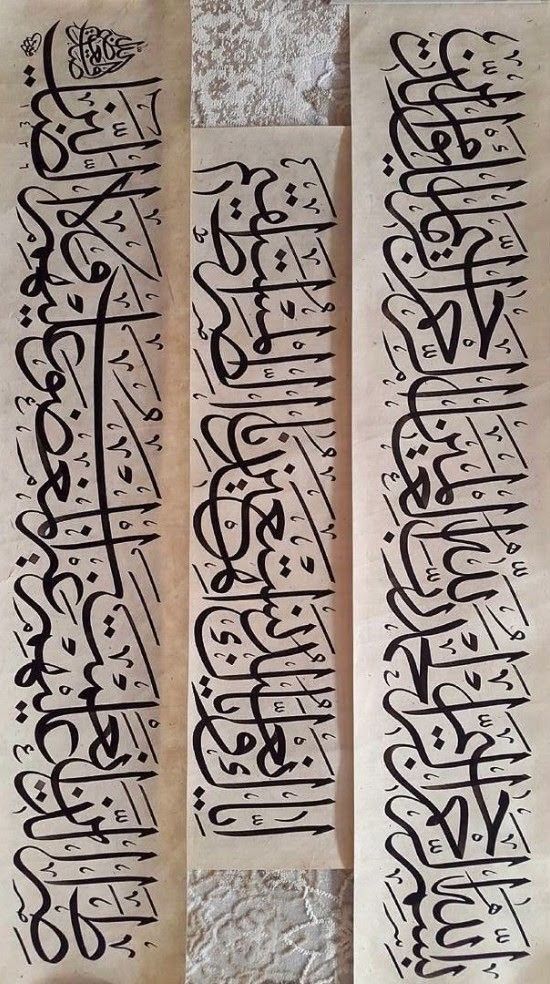 بِسْمِ اللَّهِ الرَّحْمَنِ الرَّحِيمِ الْحَمْدُ لِلَّهِ رَبِّ الْعَالَمِينَ الرَّحْمَنِ الرَّحِيمِ مَالِكِ يَوْمِ الدِّينِ
إِيَّاكَ نَعْبُدُ وَإِيَّاكَ نَسْتَعِينُ اهْدِنَا الصِّرَاطَ الْمُسْتَقِيمَ
صِرَاطَ الَّذِينَ أَنْعَمْتَ عَلَيْهِمْ غَيْرِ الْمَغْضُوبِ عَلَيْهِمْ وَلَا الضَّالِّينَ